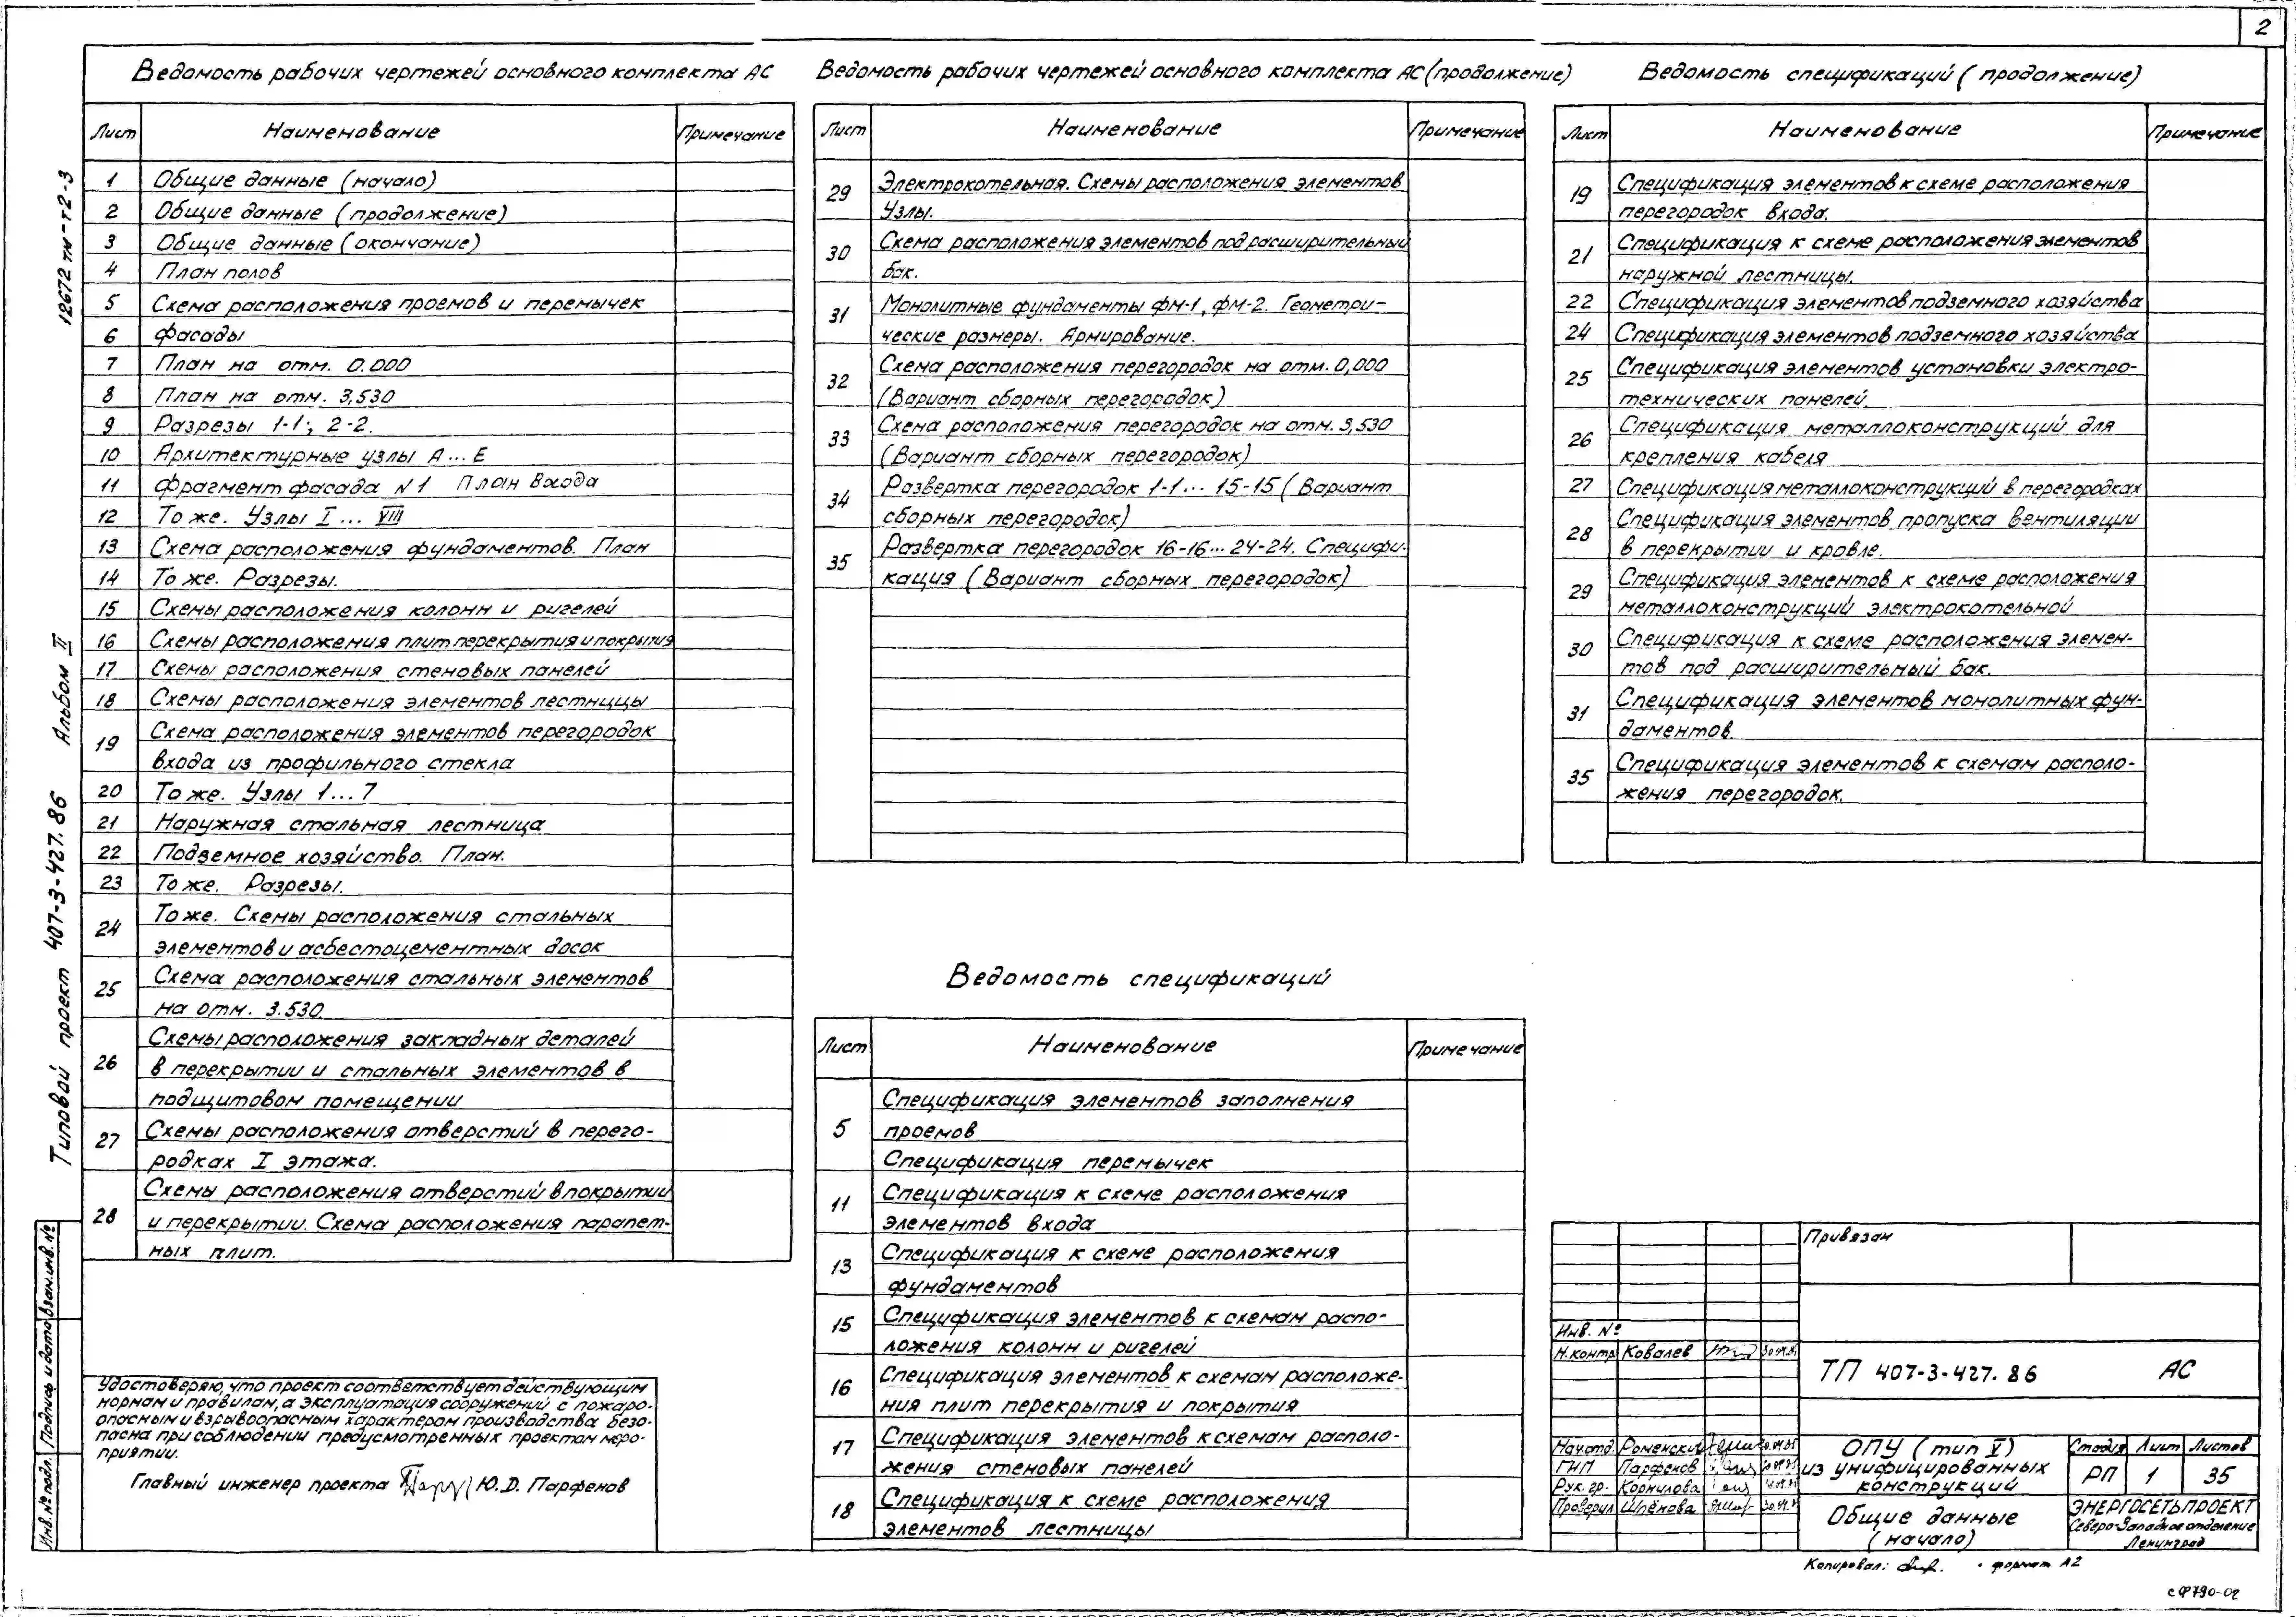 2
Ведомость рабочих чертежей основного комплекта АС
Лист Наименование Примечание
1 Общие данные (начало)
2 Общие данные (продолжение)
3 Общие данные (окончание)
4 План полов
5 Схема расположения проемов и перемычек
6 Фасады
7 План на отм. 0.000
8 План на отм. 3,530
9 Разрезы 1-1; 2-2.
10 Архитектурные узлы А...Е
11 Фрагмент фасада N1 План входа
12 То же. Узлы I ... VIII
13 Схема расположения фундаментов. План
14 То же. Разрезы.
15 Схемы расположения колонн и ригелей
16 Схемы расположения плит перекрытия и покрытия
17 Схемы расположения стеновых панелей
18 Схемы расположения элементов лестницы
19 Схема расположения элементов перегородок
входа из профильного стекла
20 То же. Узлы 1...7
21 Наружная стальная лестница
22 Подземное хозяйство. План.
23 То же. Разрезы.
24 То же. Схемы расположения стальных
элементов и асбестоцементных досок
25 Схема расположения стальных элементов
на отм. 3.530
26 Схемы расположения закладных деталей
в перекрытии и стальных элементов в
подщитовом помещении
27 Схемы расположения отверстий в перего-
родках I этажа.
28 Схемы расположения отверстий в покрытии
и перекрытии. Схема расположения парапет-
ных плит.
Ведомость рабочих чертежей основного комплекта АС (продолжение)
Лист Наименование Примечание
29 Электрокотельная. Схемы расположения элементов
Узлы.
30 Схема расположения элементов под расширительный
бак.
31 Монолитные фундаменты фм-1, фм-2. Геометри-
ческие размеры. Армирование.
32 Схема расположения перегородок на отм. 0,000
(Вариант сборных перегородок)
33 Схема расположения перегородок на отм. 3,530
(Вариант сборных перегородок)
34 Развертка перегородок 1-1... 15-15 (Вариант
сборных перегородок)
35 Развертка перегородок 16-16... 24-24. Специфи-
кация (Вариант сборных перегородок)
Ведомость спецификаций
Лист Наименование Примечание
5 Спецификация элементов заполнения
проемов
Спецификация перемычек
11 Спецификация к схеме расположения
элементов входа
13 Спецификация к схеме расположения
фундаментов
15 Спецификация элементов к схемам распо-
ложения колонн и ригелей
16 Спецификация элементов к схемам расположе-
ния плит перекрытия и покрытия
17 Спецификация элементов к схемам располо-
жения стеновых панелей
18 Спецификация к схеме расположения
элементов лестницы
Ведомость спецификаций (продолжение)
Лист Наименование Примечание
19 Спецификация элементов к схеме расположения
перегородок входа.
21 Спецификация к схеме расположения элементов
наружной лестницы.
22 Спецификация элементов подземного хозяйства
24 Спецификация элементов подземного хозяйства
25 Спецификация элементов установки электро-
технических панелей.
26 Спецификация металлоконструкций для
крепления кабеля
27 Спецификация металлоконструкций в перегородках
28 Спецификация элементов пропуска вентиляции
в перекрытии и кровле.
29 Спецификация элементов к схеме расположения
металлоконструкций электрокотельной
30 Спецификация к схеме расположения элемен-
тов под расширительный бак.
31 Спецификация элементов монолитных фун-
даментов.
35 Спецификация элементов к схемам располо-
жения перегородок.
12672тм-т2-3
Альбом II
Типовой проект 407-3-427.86
Инв.№ подл. Подпись и дата Взам.инв.№
Удостоверяю, что проект соответствует действующим
нормам и правилам, а эксплуатация сооружений с пожаро-
опасным и взрывоопасным характером производства безо-
пасна при соблюдении предусмотренных проектом меро-
приятии.
Главный инженер проекта Ю.Д. Парфенов
Привязан
Инв. №
Н.контр Ковалев
ТП 407-3-427.86 АС
Нач.отд. Роменский
ГИП Парфенов
Рук.гр. Корнилова
Проверил Шпёнова
ОПУ (тип V)
из унифицированных
конструкций
Стадия Лист Листов
РП 1 35
Общие данные
(начало)
ЭНЕРГОСЕТЬПРОЕКТ
Северо-Западное отделение
Ленинград
Копировал: формат А2
сф790-02